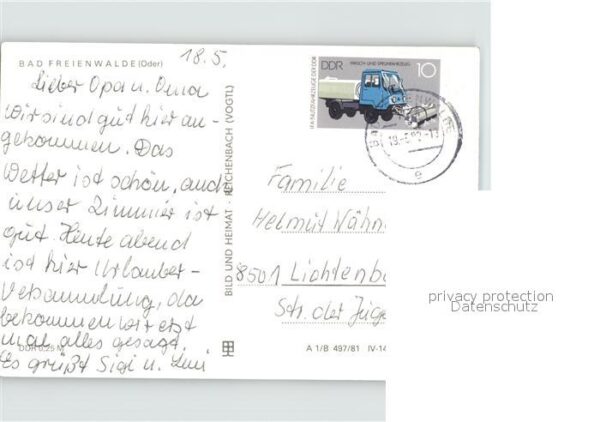 BAD FREIENWALDE (Oder)
18.5.
Lieber Opa u. Oma
Wir sind gut hier an-
gekommen. Das
Wetter ist schön, auch
unser Zimmer ist
gut. Heute abend
ist hier Urlauber-
Versammlung, da
bekommen wir erst
mal alles gesagt.
Es grüßt Sigi u.
DDR 0,25 M
BILD UND HEIMAT · REICHENBACH (VOGTL)
A 1/B 497/81 IV-14
DDR
10
IFA-NUTZFAHRZEUGE DER DDR
Familie
Helmut
8501 Lichtenb
Str. der Juge
privacy protection
Datenschutz